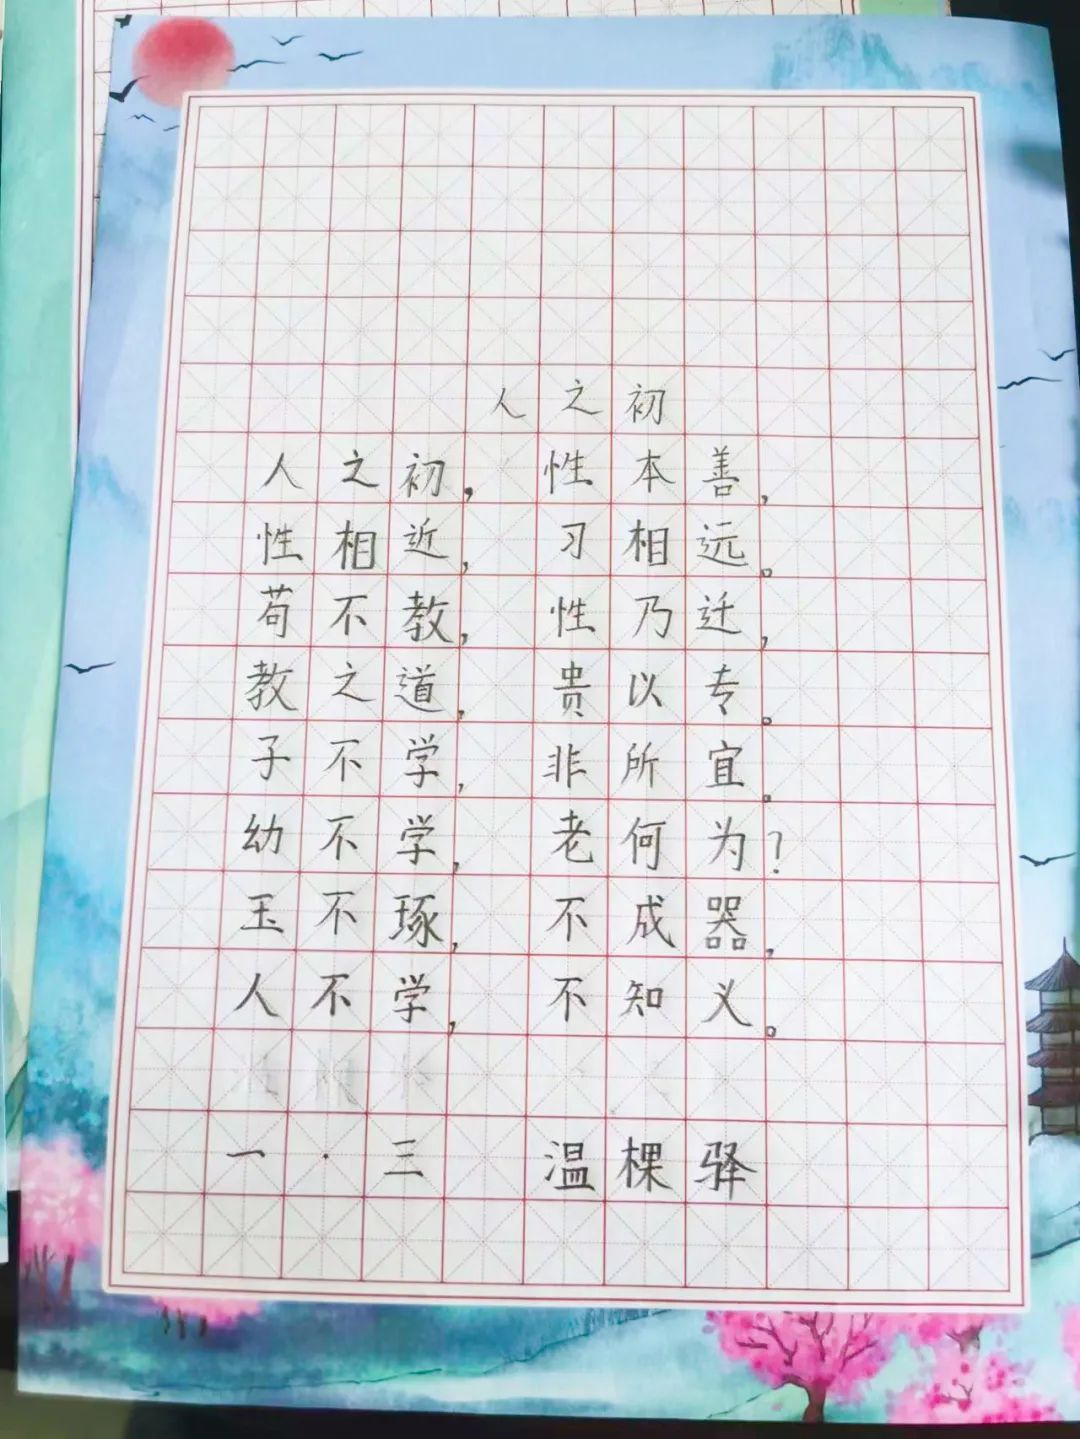 人之初
人之初，性本善，
性相近，习相远。
苟不教，性乃迁，
教之道，贵以专。
子不学，非所宜。
幼不学，老何为？
玉不琢，不成器，
人不学，不知义。
一·三 温棵驿